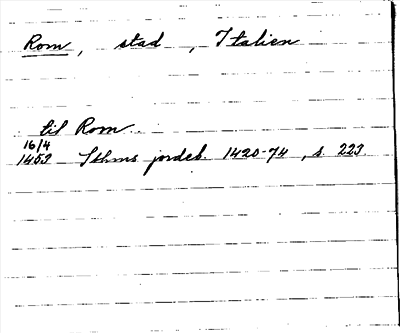 Rom, stad, Italien
til Rom
16/4
1453 Sthms jordeb. 1420-74, s. 223.